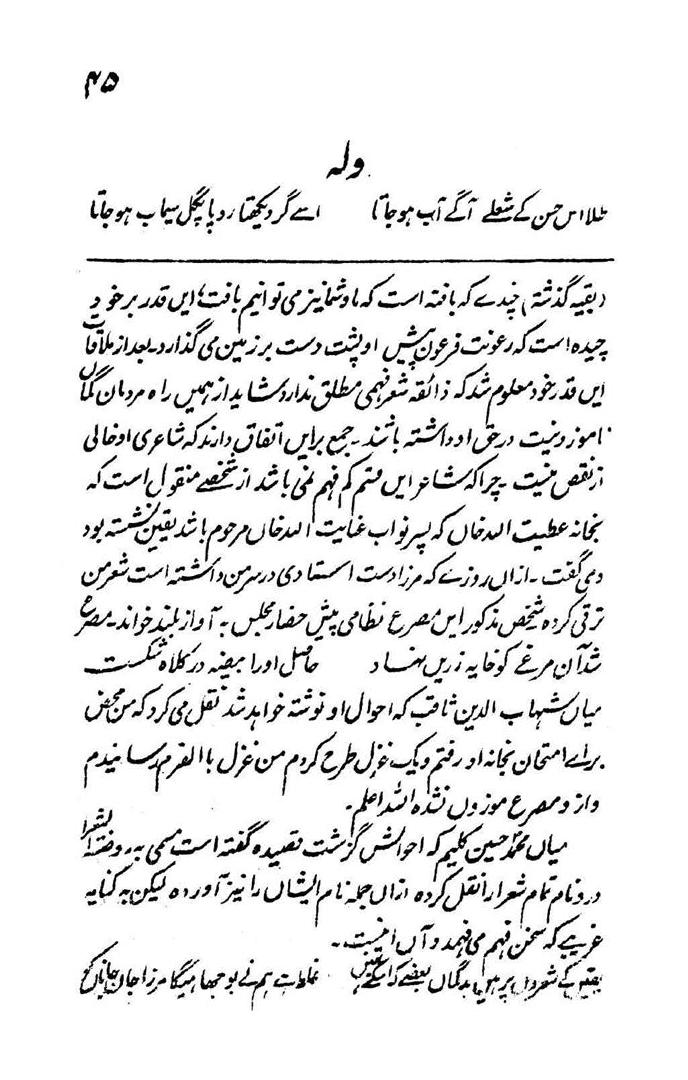 ۴۵
ولہ
طلا اس حسن کے شعلے آگے آب ہو جاتا اسے گر دیکھتا رو پا پگل سیماب ہو جاتا
(بقیہ گذشتہ) چندے کہ بافتہ است کہ ما و شما نیز می توانیم بافت؛ ایں قدر بر خود
چیدہ است کہ رعونت فرعون پیش او پشت دست بر زمین می گذارد۔ بعد از ملاقات
ایں قدر خود معلوم شد کہ ذائقہ شعر فہمی مطلق ندارد شاید از ہمیں راہ مردمان گمان
ناموزونیت در حق او داشتہ باشند۔ جمع برایں اتفاق دارند کہ شاعری او خالی
از نقص نیست۔ چرا کہ شاعر ایں قسم کم فہم نمی باشد از شخصے منقول است کہ
بخانہ عطیت اللہ خاں کہ پسر نواب عنایت اللہ خاں مرحوم باشد یقین نشستہ بود
و می گفت۔ از اں روزے کہ مرزا دست استادی در سر من داشتہ است شعر من
ترقی کردہ شخص مذکور ایں مصرع نظامی پیش حضار مجلس بہ آواز بلند خواند۔ مصرع
شد آن مرغے کو خایہ زریں نہاد حاصل اورا بیضہ در کلاہ شکست
میاں شہاب الدین ثاقب کہ احوال او نوشتہ خواہد شد نقل می کرد کہ من محض
برائے امتحان بخانہ او رفتم و یک غزل طرح کردم من غزل با الفرم رسانیدم
و از و مصرع موزوں نشدہ اللہ اعلم۔
میاں محمد حسین کلیم کہ احوالش گزشت قصیدہ گفتہ است مسمی بہ روضۃ الشعرا
در و نام تمام شعرا را نقل کردہ از اں جملہ نام ایشاں را نیز آوردہ لیکن بہ کنایہ
غریبے کہ سخن فہم می فہمد و آں اینست۔
یقیں کے شعر وں پر ہیں بدگماں بعضے کہ اسکے نہیں غلط ہے ہم نے بوجھا ہیگا مرزا جان جاناں کا